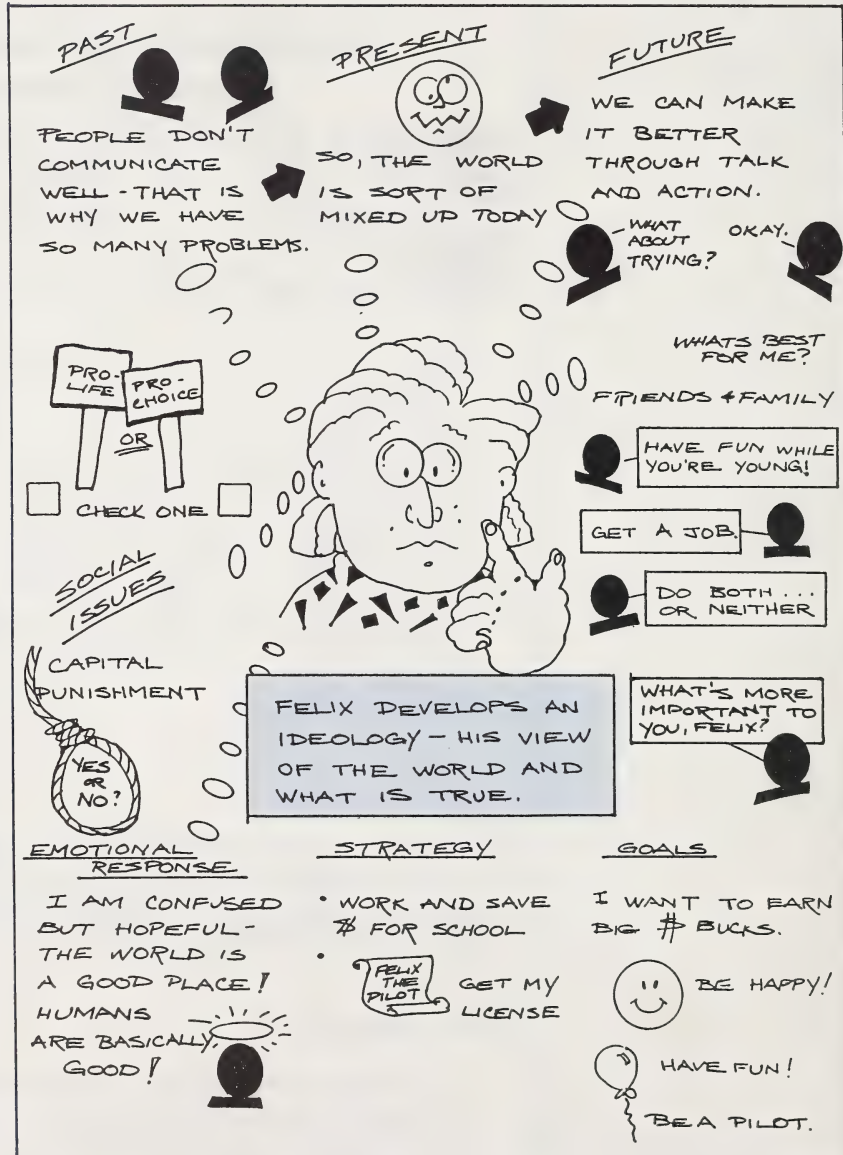 PAST
PEOPLE DON'T
COMMUNICATE
WELL - THAT IS
WHY WE HAVE
SO MANY PROBLEMS.
PRESENT
SO, THE WORLD
IS SORT OF
MIXED UP TODAY
FUTURE
WE CAN MAKE
IT BETTER
THROUGH TALK
AND ACTION.
WHAT
ABOUT
TRYING?
OKAY.
PRO-
LIFE
PRO-
CHOICE
OR
CHECK ONE
SOCIAL
ISSUES
CAPITAL
PUNISHMENT
YES
OR
NO?
WHATS BEST
FOR ME?
FRIENDS & FAMILY
HAVE FUN WHILE
YOU'RE YOUNG!
GET A JOB.
DO BOTH...
OR NEITHER
WHAT'S MORE
IMPORTANT TO
YOU, FELIX?
FELIX DEVELOPS AN
IDEOLOGY - HIS VIEW
OF THE WORLD AND
WHAT IS TRUE.
EMOTIONAL
RESPONSE
I AM CONFUSED
BUT HOPEFUL -
THE WORLD IS
A GOOD PLACE!
HUMANS
ARE BASICALLY
GOOD!
STRATEGY
• WORK AND SAVE
$ FOR SCHOOL
•
FELIX
THE
PILOT
GET MY
LICENSE
GOALS
I WANT TO EARN
BIG $ BUCKS.
BE HAPPY!
HAVE FUN!
BE A PILOT.